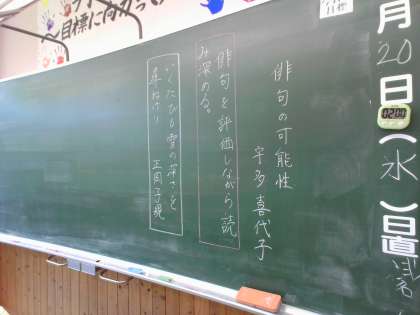 月20日(水)日直
02:01
俳句の可能性
宇多喜代子
俳句を評価しながら読
み深める。
いくたびも雪の深さを
尋ねけり
正岡子規
目標に向かって